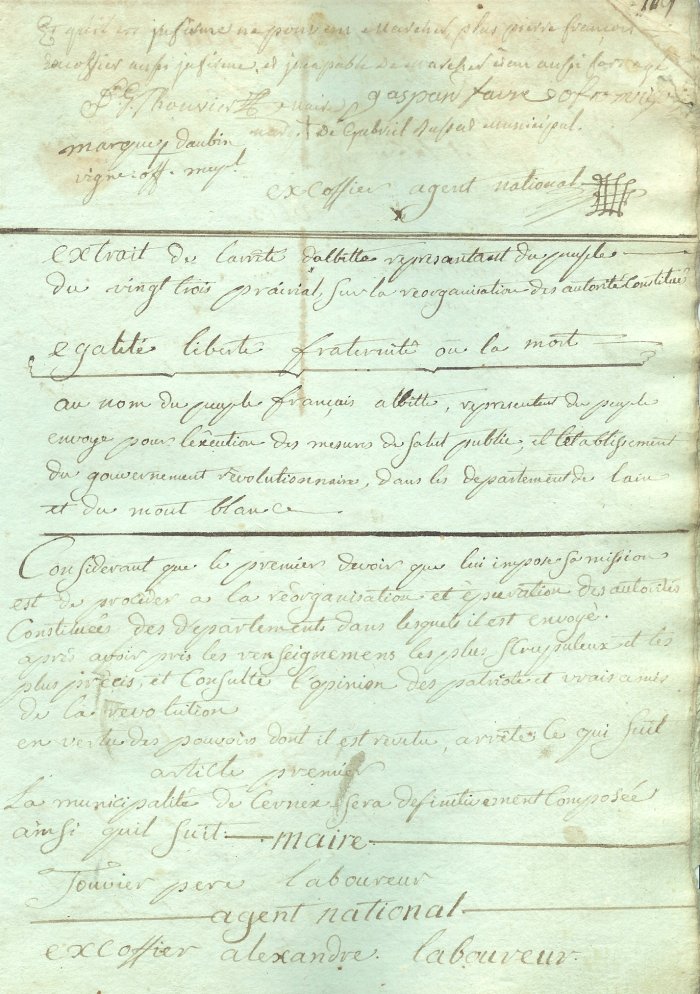 Et quil est infirme ne pouvent marcher, plus pierre francois
excoffier aussi infirme, et incapable de marcher
Thouvier maire gaspard favre offi
marque + de Gabriel municipal.
marque + daubin
vigne off. mupl
excoffier agent national
extrait de larreté dalbitte représantant du peuple
du vingt trois prairial, sur la reorganisation des autorité Constitué
egalité liberté fraternité ou la mort
au nom du peuple français albitte, representent du peuple
envoye pour lexécution des mesures de salut public, et letablissement
du gouvernement révolutionnaire, dans les departement de lain
et du mont blanc.
Considerant que le premier devoir que lui impose sa mission
est de procéder a la réorganisation et épuration des autorités
Constituées des départements dans lesquels il est envoyé.
après avoir pris les renseignemens les plus scrupuleux et les
plus précis, et Consulté l'opinion des patriote et vrais amis
de la revolution
en vertu des pouvoirs dont il est revetu, arrête Ce qui suit
article premier
La municipalité de Cernex sera definitivement Composée
ainsi quil suit maire
Touvier pere laboureur
agent national
excoffier alexandre laboureur.